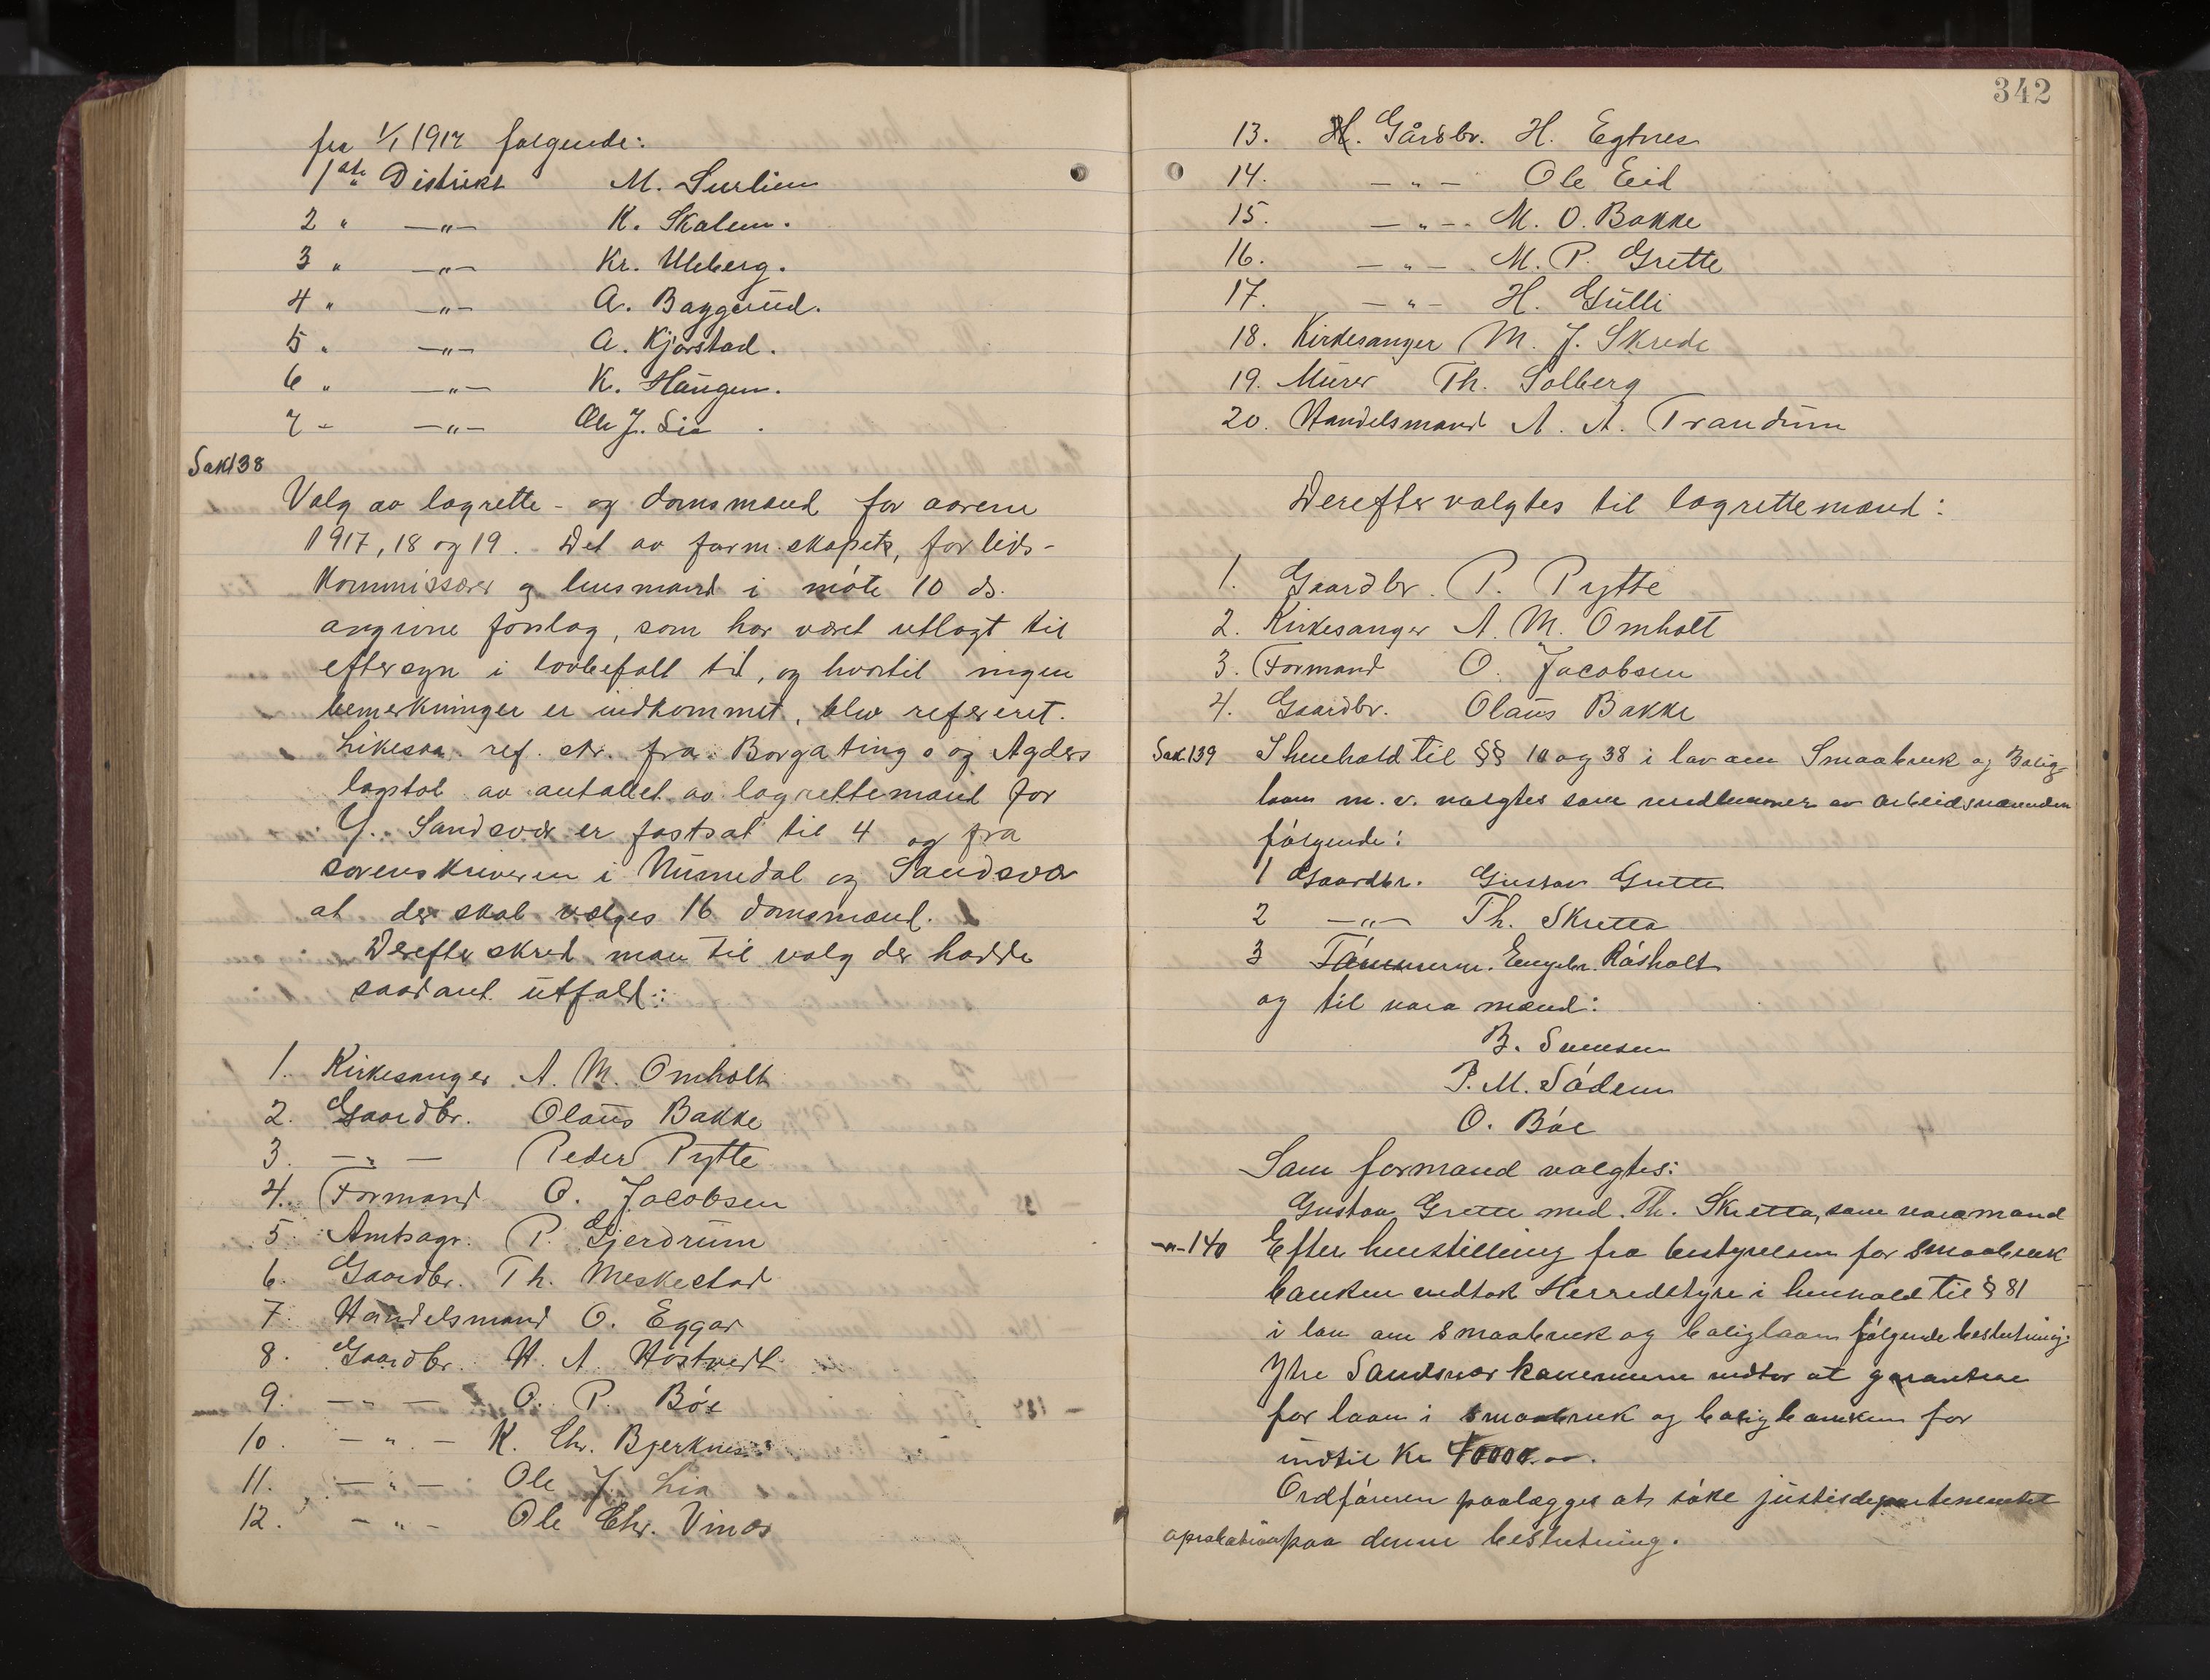 fra 1/1 1917 følgende:
1ste Distrikt M. Surlien
2 " —"— K. Skalen.
3 " —"— Kr. Uleberg.
4 " —"— A. Baggerud.
5 " —"— A. Kjørstad.
6 " —"— K. Haugen.
7 - —"— Ole J. Lia.
Sak 138
Valg av lagrette- og domsmænd for aarene
1917, 18 og 19. Det av form.skapet, forliks-
kommissær og lensmand i møte 10 ds.
angivne forslag, som har været utlagt til
eftersyn i lovbefalt tid, og hvortil ingen
bemerkninger er indkommet, blev referert.
Likesaa ref. skr. fra Borgatings og Agders
lagstol av antallet av lagrettemænd for
Y. Sandsvær er fastsat til 4 og fra
sorenskriveren i Numedal og Sandsvær
at der skal vælges 16 domsmænd.
Derefter skred man til valg der hadde
saadant utfald:
1. Kirkesanger A. M. Omholt
2. Gaardbr. Olaus Bakke
3. —"— Peder Pytte
4. Formand O. Jacobsen
5. Amtsagr. P. Gjerdrum
6. Gaardbr. Th. Meskestad
7. Handelsmand O. Eggar
8. Gaardbr. H. A. Hostvedt
9. —"— O. P. Bøe
10. —"— K. Chr. Bjerknes
11. —"— Ole J. Lia
12. —"— Ole Chr. Vinæs
342
13. H. Gårdbr. H. Egtnes
14. —"— Ole Eid
15. —"— M. O. Bakke
16. —"— M. P. Grette
17. —"— H. Gulli
18. Kirkesanger M. J. Skrede
19. Murer Th. Solberg
20. Handelsmand A. A. Trandum
Derefter valgtes til lagrettemænd:
1. Gaardbr. P. Pytte
2. Kirkesanger A. M. Omholt
3. Formand O. Jacobsen
4. Gaardbr. Olaus Bakke
Sak 139 I henhold til §§ 10 og 38 i lov om Smaabruk og Bolig-
laan m. v. valgtes som medlemmer av arbeidsnævnden
følgende:
1 Gaardbr. Gustav Grette
2 —"— Th. Skretta
3 Tømmerm. Engebr. Råsholt
og til vara mænd:
B. Svensen
P. M. Sødem
O. Bøe
Som formand valgtes:
Gustav Grette med Th. Skretta, som varamand
-"- 140 Efter henstilling fra bestyrelsen for Smaabruk
banken vedtok Herredstyre i henhold til § 81
i lov om Smaabruk og boliglaan følgende beslutning:
Ytre Sandsvær kommune vedtar at garantere
for laan i Smaabruk og boligbanken for
indtil Kr 40000.00.
Ordføreren paalægges at søke justisdepartementet
aprobation paa denne beslutning.